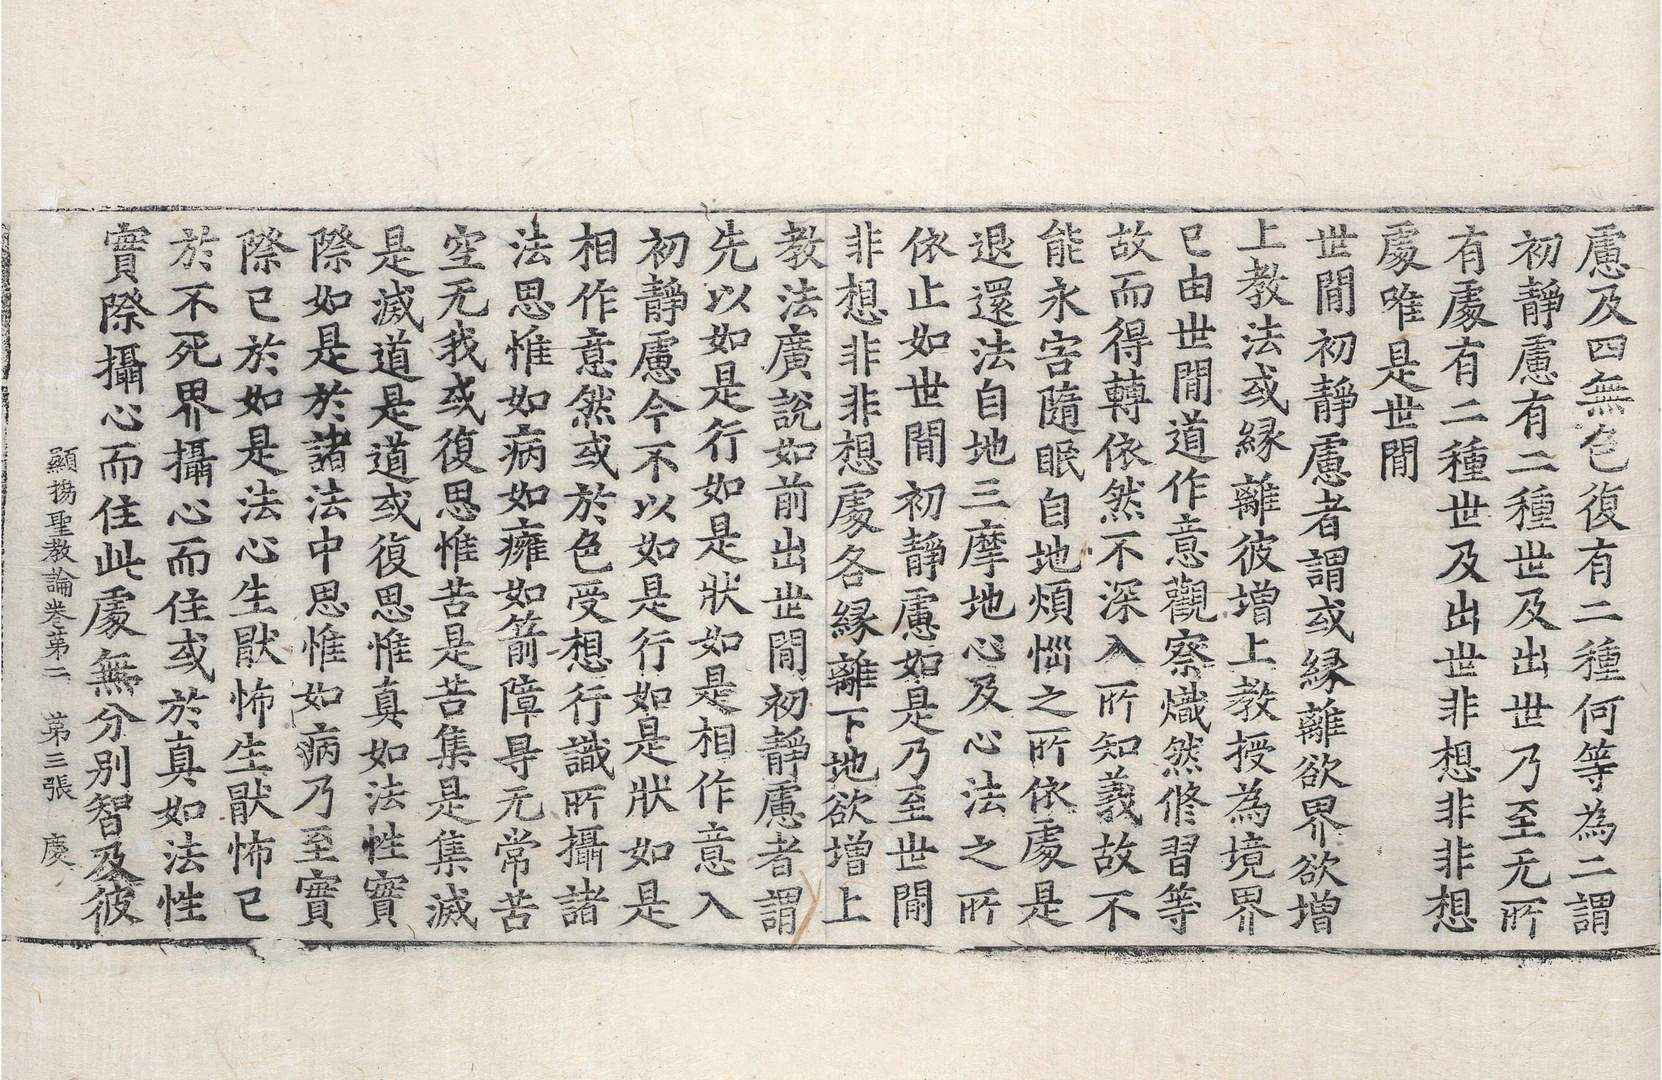 慮及四無色復有二種何等為二謂
初靜慮有二種世及出世乃至无所
有處有二種世及出世非想非非想
處唯是世間
世間初靜慮者謂或縁離欲界欲增
上教法或縁離彼增上教授為境界
已由世間道作意觀察熾然修習等
故而得轉依然不深入所知義故不
能永害隨眠自地煩惱之所依處是
退還法自地三摩地心及心法之所
依止如世間初靜慮如是乃至世間
非想非非想處各縁離下地欲增上
教法廣說如前出世間初靜慮者謂
先以如是行如是狀如是相作意入
初靜慮今不以如是行如是狀如是
相作意然或於色受想行識所攝諸
法思惟如病如癰如箭障㝵无常苦
空无我或復思惟苦是苦集是集滅
是滅道是道或復思惟真如法性實
際如是於諸法中思惟如病乃至實
際已於如是法心生猒怖生猒怖已
於不死界攝心而住或於真如法性
實際攝心而住此處無分別智及彼
顯揚聖教論卷第二　第三張　慶